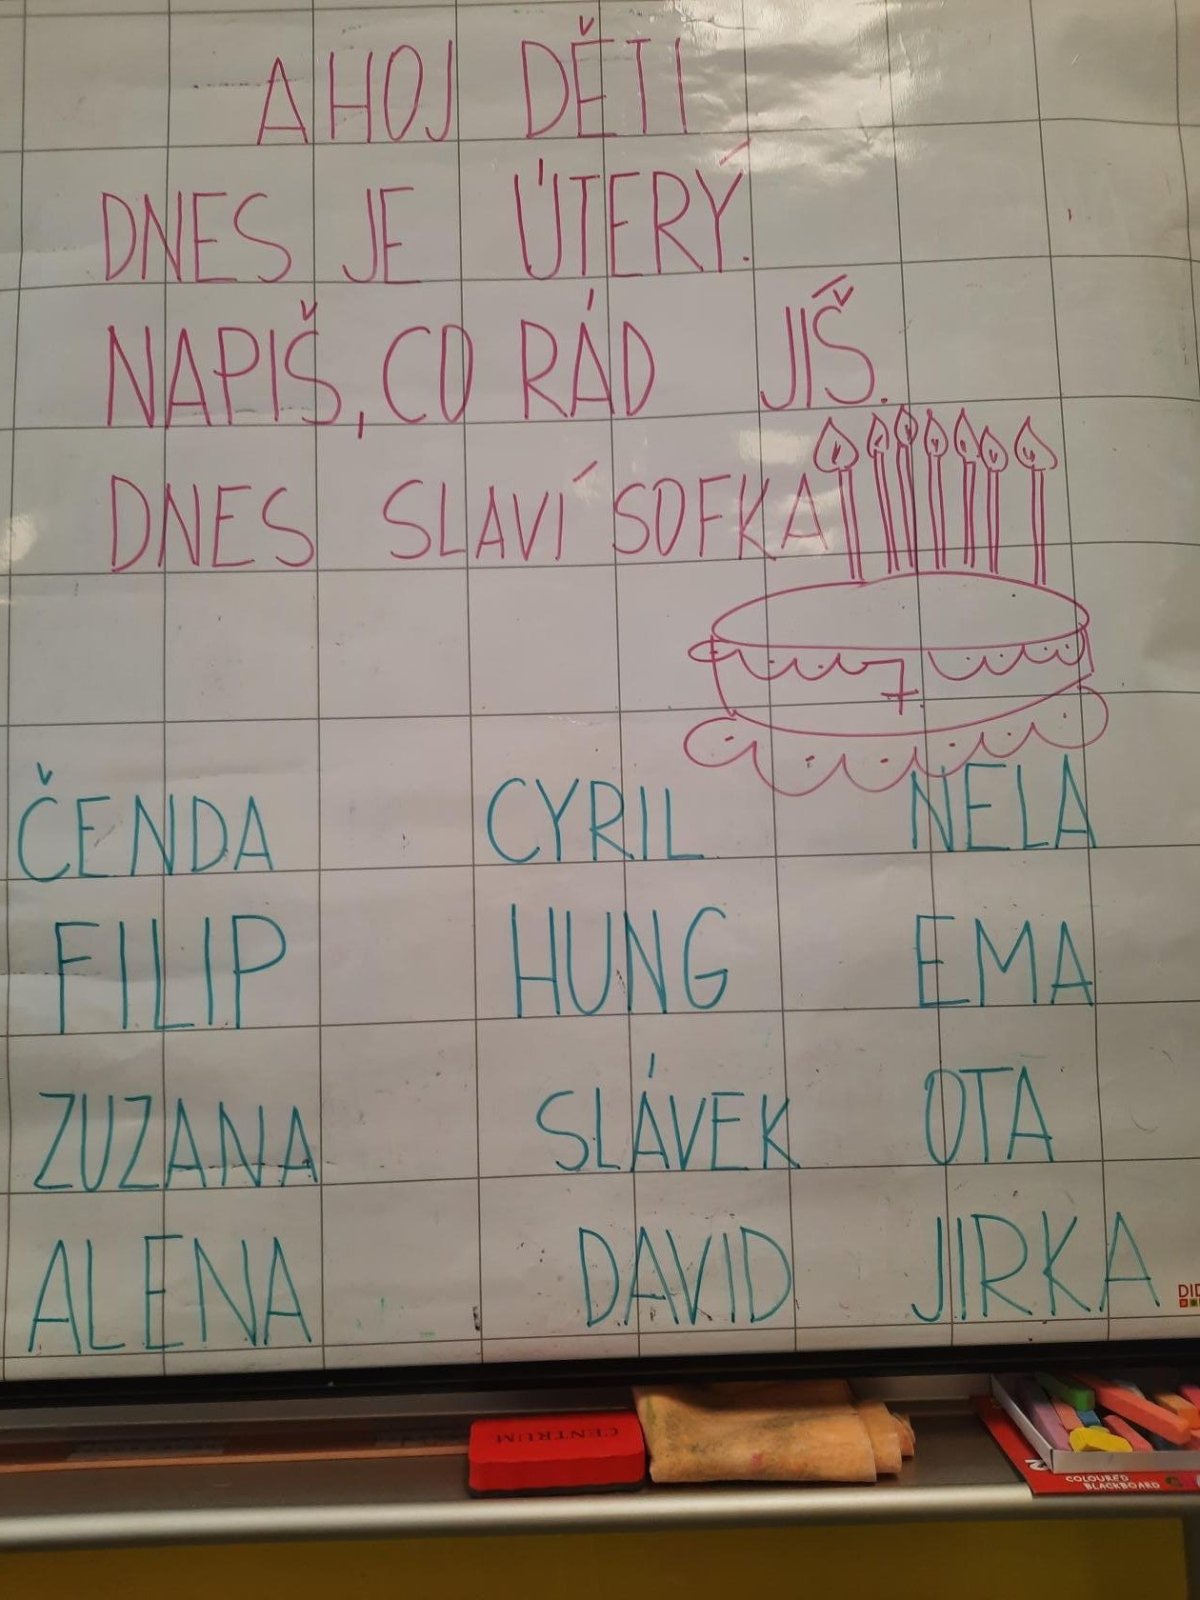 AHOJ DĚTI
DNES JE ÚTERÝ.
NAPIŠ, CO RÁD JÍŠ.
DNES SLAVÍ SOFKA
7
ČENDA CYRIL NELA
FILIP HUNG EMA
ZUZANA SLÁVEK OTA
ALENA DAVID JIRKA
DID
CENTRUM
COLOURED
BLACKBOARD